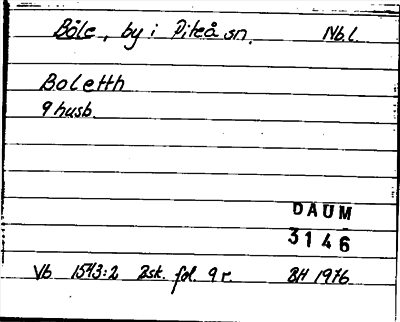 Böle, by i Piteå sn. Nb.l.
Boletth
9 husb.
DAUM
3146
Vb 1543:2 2sk. fol. 9 r. BH 1976